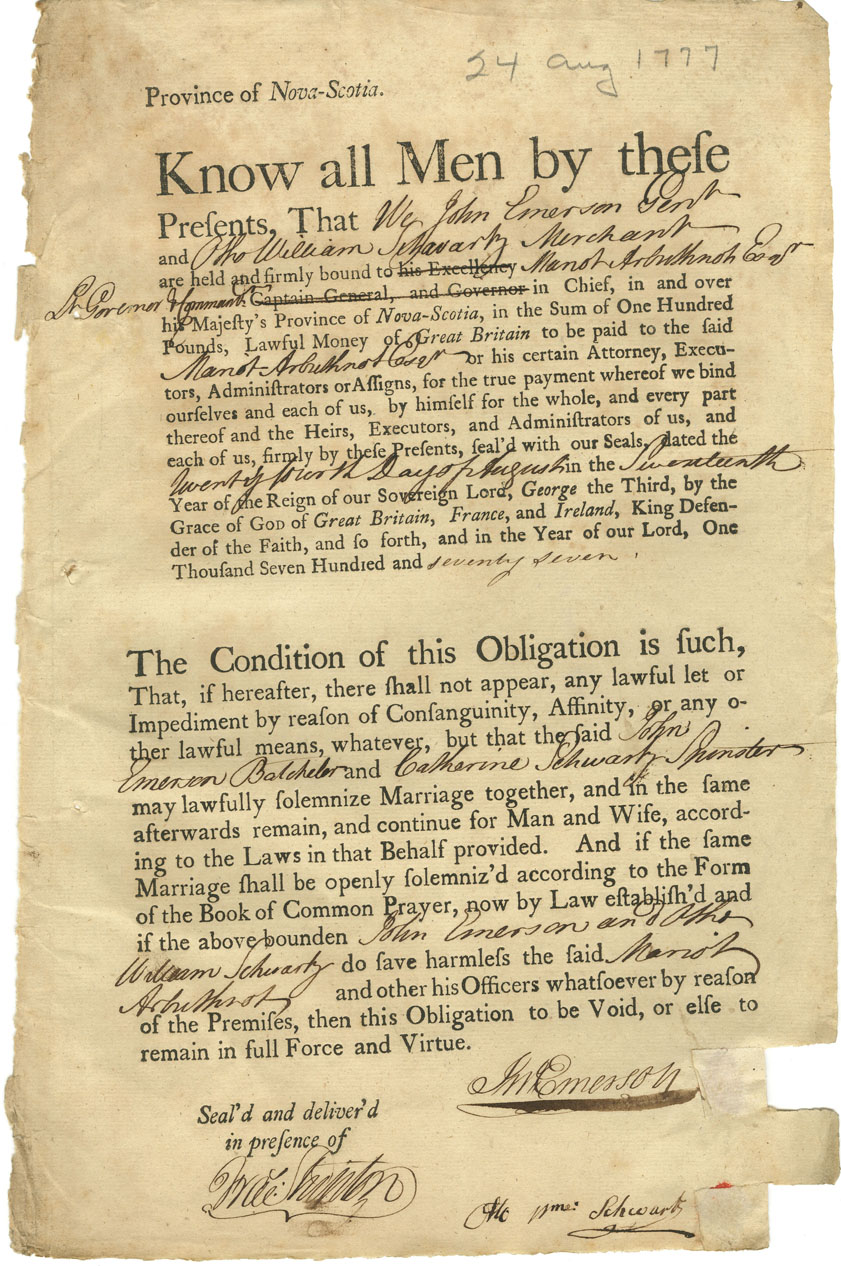 24 Aug 1777
Province of Nova-Scotia.
Know all Men by theſe
Preſents, That We John Emerson Gent
and Otho William Schwartz Merchant
are held and firmly bound to his Excellency Mariot Arbuthnot Esqr
Lt. Governor & Command.r Captain General, and Governor in Chief, in and over
his Majeſty's Province of Nova-Scotia, in the Sum of One Hundred
Pounds, Lawful Money of Great Britain to be paid to the ſaid
Mariot Arbuthnot Esqr or his certain Attorney, Execu-
tors, Adminiſtrators or Aſſigns, for the true payment whereof we bind
ourſelves and each of us, by himſelf for the whole, and every part
thereof and the Heirs, Executors, and Adminiſtrators of us, and
each of us, firmly by theſe Preſents, ſeal'd with our Seals, dated the
twenty fourth Day of August in the Seventeenth
Year of the Reign of our Sovereign Lord, George the Third, by the
Grace of God of Great Britain, France, and Ireland, King Defen-
der of the Faith, and ſo forth, and in the Year of our Lord, One
Thouſand Seven Hundred and seventy seven.
The Condition of this Obligation is ſuch,
That, if hereafter, there ſhall not appear, any lawful let or
Impediment by reaſon of Conſanguinity, Affinity, or any o-
ther lawful means, whatever, but that the ſaid John
Emerson Batchelor and Catherine Schwartz Spinster
may lawfully ſolemnize Marriage together, and in the ſame
afterwards remain, and continue for Man and Wife, accord-
ing to the Laws in that Behalf provided. And if the ſame
Marriage ſhall be openly ſolemniz'd according to the Form
of the Book of Common Prayer, now by Law eſtabliſh'd and
if the above bounden John Emerson and Otho
William Schwartz do ſave harmleſs the ſaid Mariot
Arbuthnot and other his Officers whatſoever by reaſon
of the Premiſes, then this Obligation to be Void, or elſe to
remain in full Force and Virtue.
Jno Emerson
Seal'd and deliver'd
in preſence of
Otho Wme: Schwartz